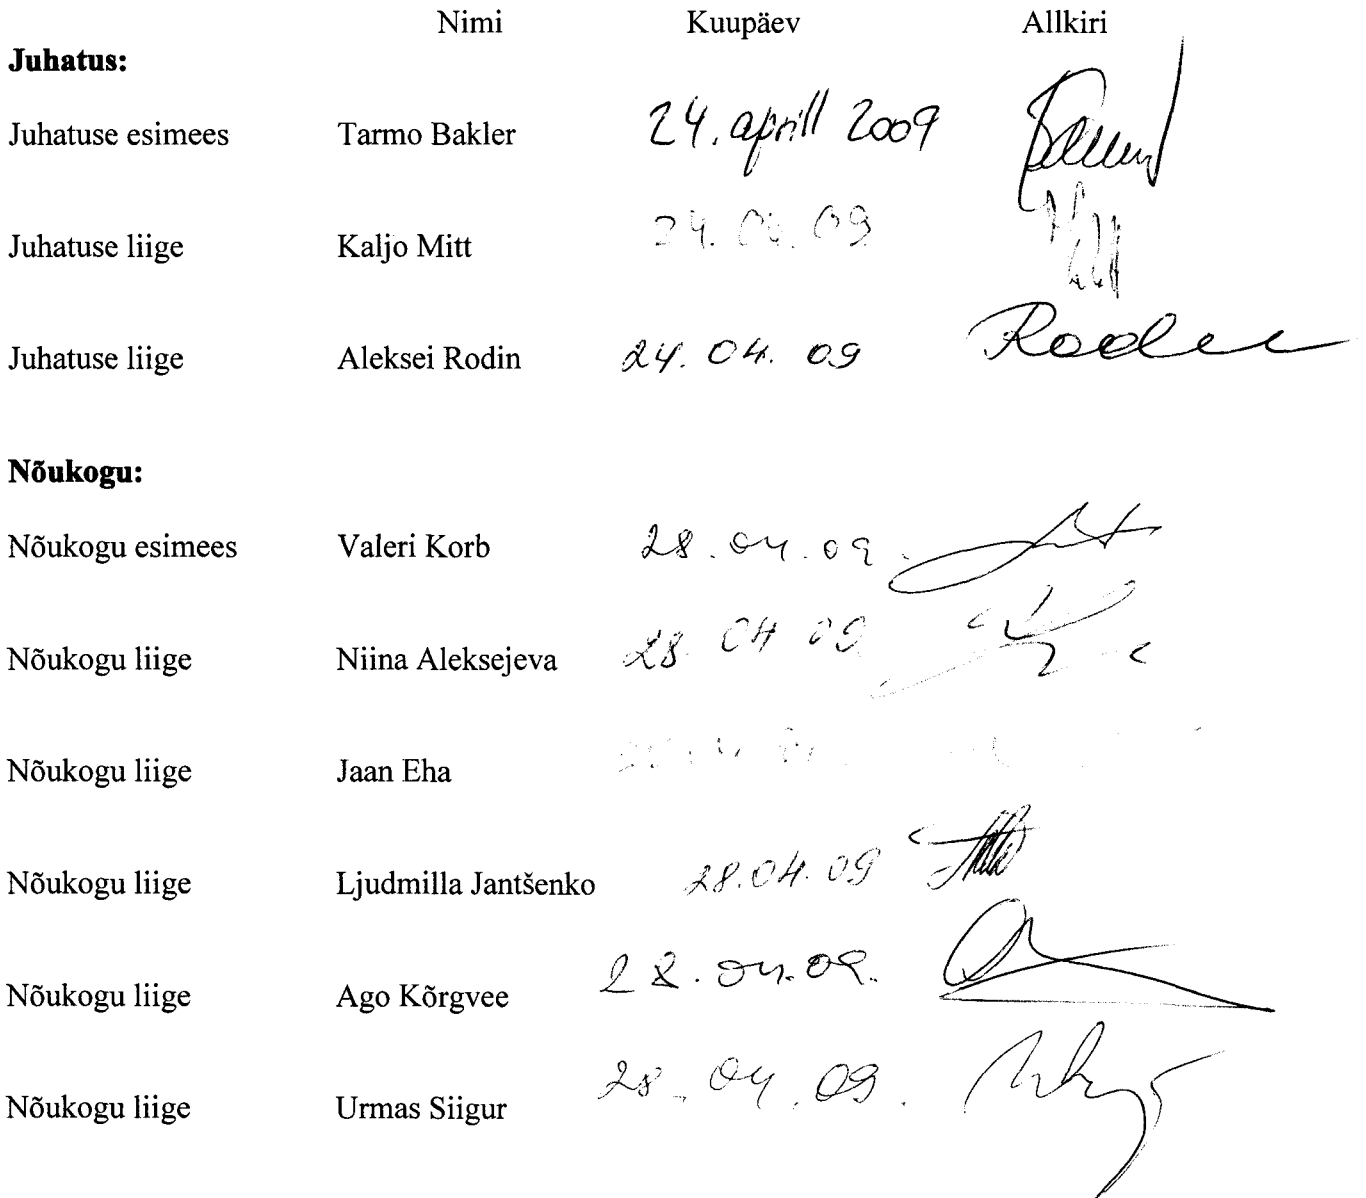 Nimi Kuupäev Allkiri
Juhatus:
Juhatuse esimees Tarmo Bakler 24. aprill 2009
Juhatuse liige Kaljo Mitt 24. 04. 09
Juhatuse liige Aleksei Rodin 24. 04. 09 Rodin
Nõukogu:
Nõukogu esimees Valeri Korb 28.04.09.
Nõukogu liige Niina Aleksejeva 28 04 09
Nõukogu liige Jaan Eha
Nõukogu liige Ljudmilla Jantšenko 28.04.09
Nõukogu liige Ago Kõrgvee 28.04.09.
Nõukogu liige Urmas Siigur 28.04.09.